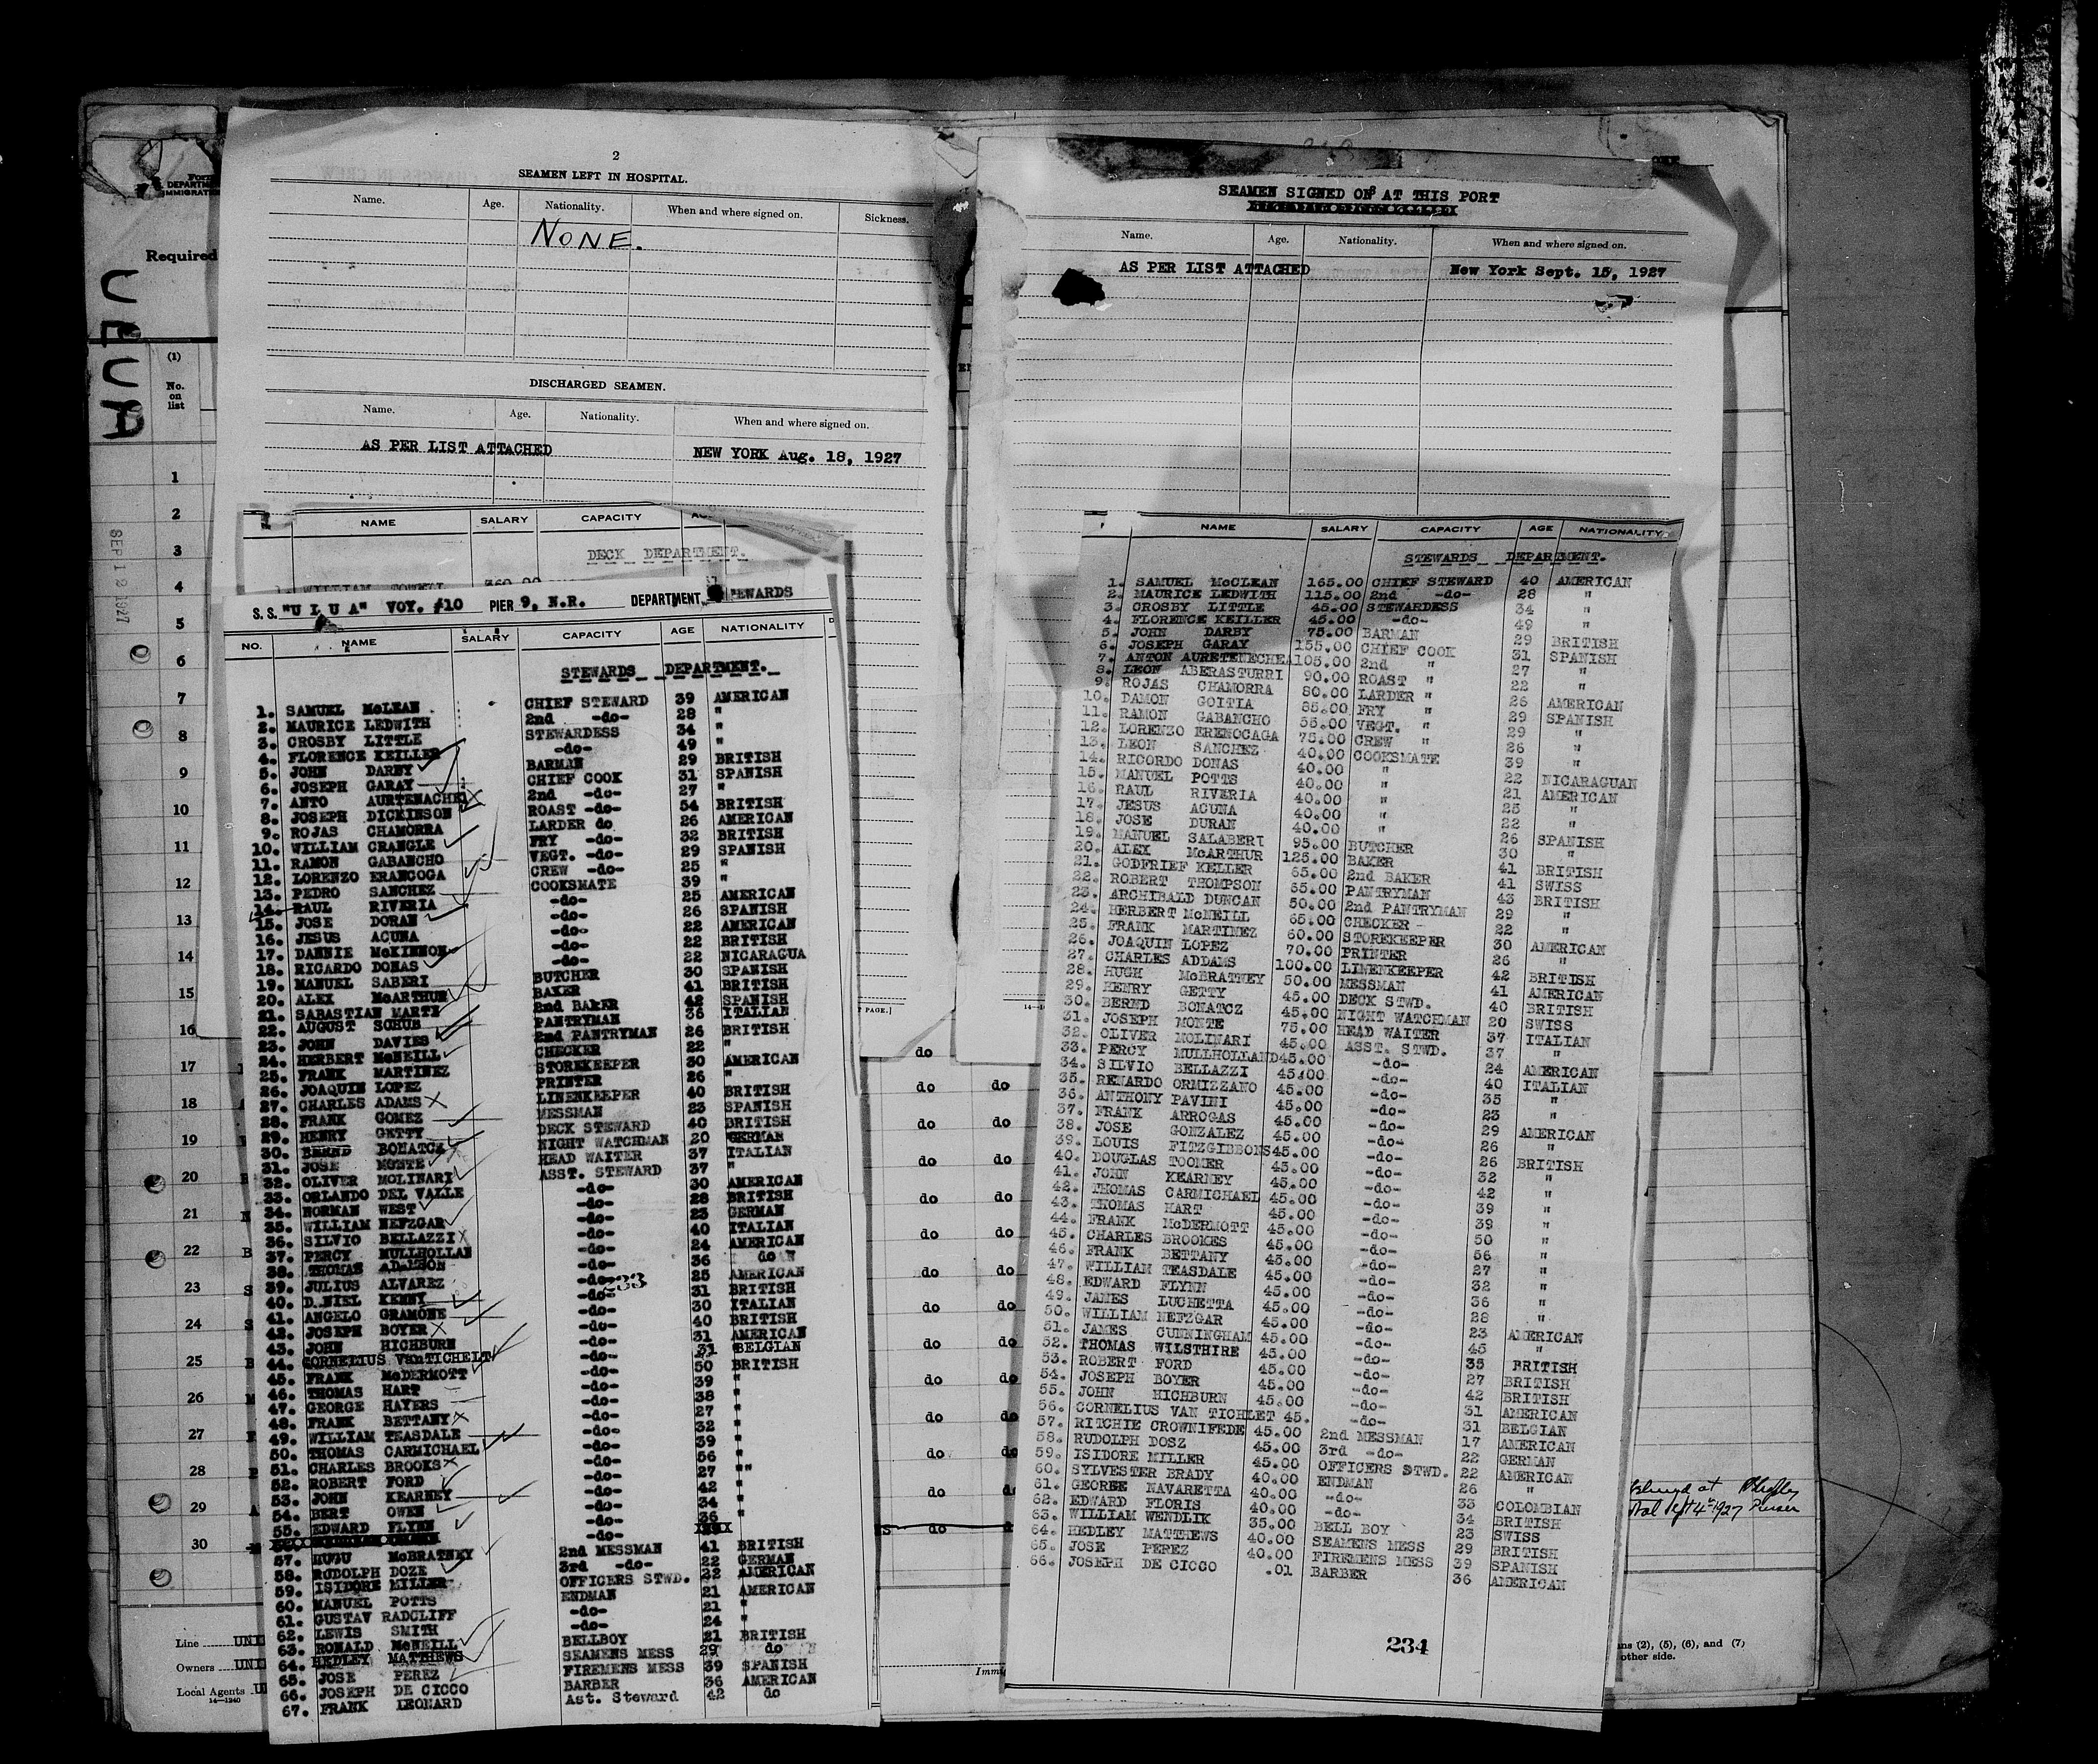 Form
DEPARTM
IMMIGRATIO
Required
ULUA
(1)
No.
on
list
SEP 12 1927
1
2
3
4
5
6
7
8
9
10
11
12
13
14
15
16
17
18
19
20
21
22
23
24
25
26
27
28
29
30
Line UNI
Owners UNI
Local Agents U
14—1240
2
SEAMEN LEFT IN HOSPITAL.
Name. Age. Nationality. When and where signed on. Sickness.
NONE.
DISCHARGED SEAMEN.
Name. Age. Nationality. When and where signed on.
AS PER LIST ATTACHED NEW YORK Aug. 18, 1927
NAME SALARY CAPACITY
DECK DEPARTMENT.
S.S. "ULUA" VOY. #10 PIER 9, N.R. DEPARTMENT STEWARDS
NO. NAME SALARY CAPACITY AGE NATIONALITY
STEWARDS DEPARTMENT.
1. SAMUEL McLEAN CHIEF STEWARD 39 AMERICAN
2. MAURICE LEDWITH 2nd -do- 28 "
3. CROSBY LITTLE STEWARDESS 34 "
4. FLORENCE KEILLER -do- 49 "
5. JOHN DARBY BARMAN 29 BRITISH
6. JOSEPH GARAY CHIEF COOK 31 SPANISH
7. ANTO AURTENACHE 2nd -do- 27 "
8. JOSEPH DICKINSON ROAST -do- 54 BRITISH
9. ROJAS CHAMORRA LARDER do 26 AMERICAN
10. WILLIAM CRANGLE FRY -do- 32 BRITISH
11. RAMON GABANCHO VEGT. -do- 29 SPANISH
12. LORENZO ERANCOGA CREW -do- 25 "
13. PEDRO SANCHEZ COOKSMATE 39 "
14. RAUL RIVERIA -do- 25 AMERICAN
15. JOSE DORAN -do- 26 SPANISH
16. JESUS ACUNA -do- 22 AMERICAN
17. DANNIE McKINNON -do- 22 BRITISH
18. RICARDO DONAS -do- 22 NICARAGUA
19. MANUEL SABERI BUTCHER 30 SPANISH
20. ALEX McARTHUR BAKER 41 BRITISH
21. SABASTIAN MARTE 2nd BAKER 42 SPANISH
22. AUGUST SCHUB PANTRYMAN 36 ITALIAN
23. JOHN DAVIES 2nd PANTRYMAN 26 BRITISH
24. HERBERT McNEILL CHECKER 22 "
25. FRANK MARTINEZ STOREKEEPER 30 AMERICAN
26. JOAQUIN LOPEZ PRINTER 26 "
27. CHARLES ADAMS LINENKEEPER 40 BRITISH
28. FRANK GOMEZ MESSMAN 23 SPANISH
29. HENRY GETTY DECK STEWARD 40 BRITISH
30. BERND BONATCZ NIGHT WATCHMAN 20 GERMAN
31. JOSE MONTE HEAD WAITER 37 ITALIAN
32. OLIVER MOLINARI ASST. STEWARD 37 "
33. ORLANDO DEL VALLE -do- 30 AMERICAN
34. NORMAN WEST -do- 28 BRITISH
35. WILLIAM NEFZGAR -do- 23 GERMAN
36. SILVIO BELLAZZI -do- 40 ITALIAN
37. PERCY MULLHOLLAN -do- 24 AMERICAN
38. THOMAS ADAMSON -do- 36 do
39. JULIUS ALVAREZ -do- 25 AMERICAN
233
40. D.NIEL KENNY -do- 31 BRITISH
41. ANGELO GRAMONE -do- 30 ITALIAN
42. JOSEPH BOYER -do- 40 BRITISH
43. JOHN HICHBURN -do- 31 AMERICAN
44. CORNELIUS VanTICHELT -do- 31 BELGIAN
45. FRANK McDERMOTT -do- 50 BRITISH
46. THOMAS HART -do- 39 "
47. GEORGE HAYERS -do- 38 "
48. FRANK BETTANY -do- 27 "
49. WILLIAM TEASDALE -do- 32 "
50. THOMAS CARMICHAEL -do- 39 "
51. CHARLES BROOKS -do- 56 "
52. ROBERT FORD -do- 27 ""
53. JOHN KEARNEY -do- 42 "
54. BERT OWEN -do- 34 "
55. EDWARD FLYNN -do- 36 "
57. HUGU McBRATNEY 2nd MESSMAN 41 BRITISH
58. RUDOLPH DOZE 3rd -do- 22 GERMAN
59. ISIDORE MILLER OFFICERS STWD. 22 AMERICAN
60. MANUEL POTTS ENDMAN 21 AMERICAN
61. GUSTAV RADCLIFF -do- 21 "
62. LEWIS SMITH -do- 24 "
63. RONALD McNEILL BELLBOY 21 BRITISH
64. HEDLEY MATTHEWS SEAMENS MESS 29 do
65. JOSE PEREZ FIREMENS MESS 39 SPANISH
66. JOSEPH DE CICCO BARBER 36 AMERICAN
67. FRANK LEONARD Ast. Steward 42 do
SEAMEN SIGNED ON AT THIS PORT
Name. Age. Nationality. When and where signed on.
AS PER LIST ATTACHED New York Sept. 15, 1927
NAME SALARY CAPACITY AGE NATIONALITY
STEWARDS DEPARTMENT.
1. SAMUEL McCLEAN 165.00 CHIEF STEWARD 40 AMERICAN
2. MAURICE LEDWITH 115.00 2nd -do- 28 "
3. CROSBY LITTLE 45.00 STEWARDESS 34 "
4. FLORENCE KEILLER 45.00 -do- 49 "
5. JOHN DARBY 75.00 BARMAN 29 BRITISH
6. JOSEPH GARAY 155.00 CHIEF COOK 31 SPANISH
7. ANTON AURETENECHEA 105.00 2nd " 27 "
8. LEON ABERASTURRI 90.00 ROAST " 22 "
9. ROJAS CHAMORRA 80.00 LARDER " 26 AMERICAN
10. DAMON GOITIA 85.00 FRY " 29 SPANISH
11. RAMON GABANCHO 55.00 VEGT. " 29 "
12. LORENZO ERENOCAGA 75.00 CREW " 26 "
13. LEON SANCHEZ 40.00 COOKSMATE 39 "
14. RICORDO DONAS 40.00 " 22 NICARAGUAN
15. MANUEL POTTS 40.00 " 21 AMERICAN
16. RAUL RIVERIA 40.00 " 25 "
17. JESUS ACUNA 40.00 " 22 "
18. JOSE DURAN 40.00 " 26 SPANISH
19. MANUEL SALABERI 95.00 BUTCHER 30 "
20. ALEX McARTHUR 125.00 BAKER 41 BRITISH
21. GODFRIEF KELLER 65.00 2nd BAKER 41 SWISS
22. ROBERT THOMPSON 55.00 PANTRYMAN 43 BRITISH
23. ARCHIBALD DUNCAN 50.00 2nd PANTRYMAN 29 "
24. HERBERT McNEILL 65.00 CHECKER 22 "
25. FRANK MARTINEZ 60.00 STOREKEEPER 30 AMERICAN
26. JOAQUIN LOPEZ 70.00 PRINTER 26 "
27. CHARLES ADDAMS 100.00 LINENKEEPER 42 BRITISH
28. HUGH McBRATNEY 50.00 MESSMAN 41 AMERICAN
29. HENRY GETTY 45.00 DECK STWD. 40 BRITISH
30. BERND BONATCZ 45.00 NIGHT WATCHMAN 20 SWISS
31. JOSEPH MONTE 75.00 HEAD WAITER 37 ITALIAN
32. OLIVER MOLINARI 45.00 ASST. STWD. 37 "
33. PERCY MULLHOLLAND 45.00 -do- 24 AMERICAN
34. SILVIO BELLAZZI 45.00 -do- 40 ITALIAN
35. RENARDO ORMIZZANO 45.00 -do- 35 "
36. ANTHONY PAVINI 45.00 -do- 23 "
37. FRANK ARROGAS 45.00 -do- 29 AMERICAN
38. JOSE GONZALEZ 45.00 -do- 26 "
39. LOUIS FITZGIBBONS 45.00 -do- 26 BRITISH
40. DOUGLAS TOOMER 45.00 -do- 32 "
41. JOHN KEARNEY 45.00 -do- 42 "
42. THOMAS CARMICHAEL 45.00 -do- 39 "
43. THOMAS HART 45.00 -do- 39 "
44. FRANK McDERMOTT 45.00 -do- 50 "
45. CHARLES BROOKES 45.00 -do- 56 "
46. FRANK BETTANY 45.00 -do- 27 "
47. WILLIAM TEASDALE 45.00 -do- 32 "
48. EDWARD FLYNN 45.00 -do- 36 "
49. JAMES LUCHETTA 45.00 -do- 28 "
50. WILLIAM NEFZGAR 45.00 -do- 23 AMERICAN
51. JAMES CUNNINGHAM 45.00 -do- 45 "
52. THOMAS WILSTHIRE 45.00 -do- 35 BRITISH
53. ROBERT FORD 45.00 -do- 27 BRITISH
54. JOSEPH BOYER 45.00 -do- 42 BRITISH
55. JOHN HICHBURN 45.00 -do- 31 AMERICAN
56. CORNELIUS VAN TICHLET 45. -do- 31 BELGIAN
57. RITCHIE CROWNIFEDE 45.00 2nd MESSMAN 17 AMERICAN
58. RUDOLPH DOSZ 45.00 3rd -do- 22 GERMAN
59. ISIDORE MILLER 45.00 OFFICERS STWD. 22 AMERICAN
60. SYLVESTER BRADY 40.00 ENDMAN 26 "
61. GEORGE NAVARETTA 40.00 -do- 33 COLOMBIAN
62. EDWARD FLORIS 40.00 -do- 34 BRITISH
63. WILLIAM WENDLIK 35.00 BELL BOY 23 SWISS
64. HEDLEY MATTHEWS 40.00 SEAMENS MESS 29 BRITISH
65. JOSE PEREZ 40.00 FIREMENS MESS 39 SPANISH
66. JOSEPH DE CICCO .01 BARBER 36 AMERICAN
234
PAGE.]
do
do do
do do
do do
do do
do do
do do
do do
do do
do do
do do
do do
do do
do
Immi
ns (2), (5), (6), and (7)
other side.
at
Sept 4 1927 Purser